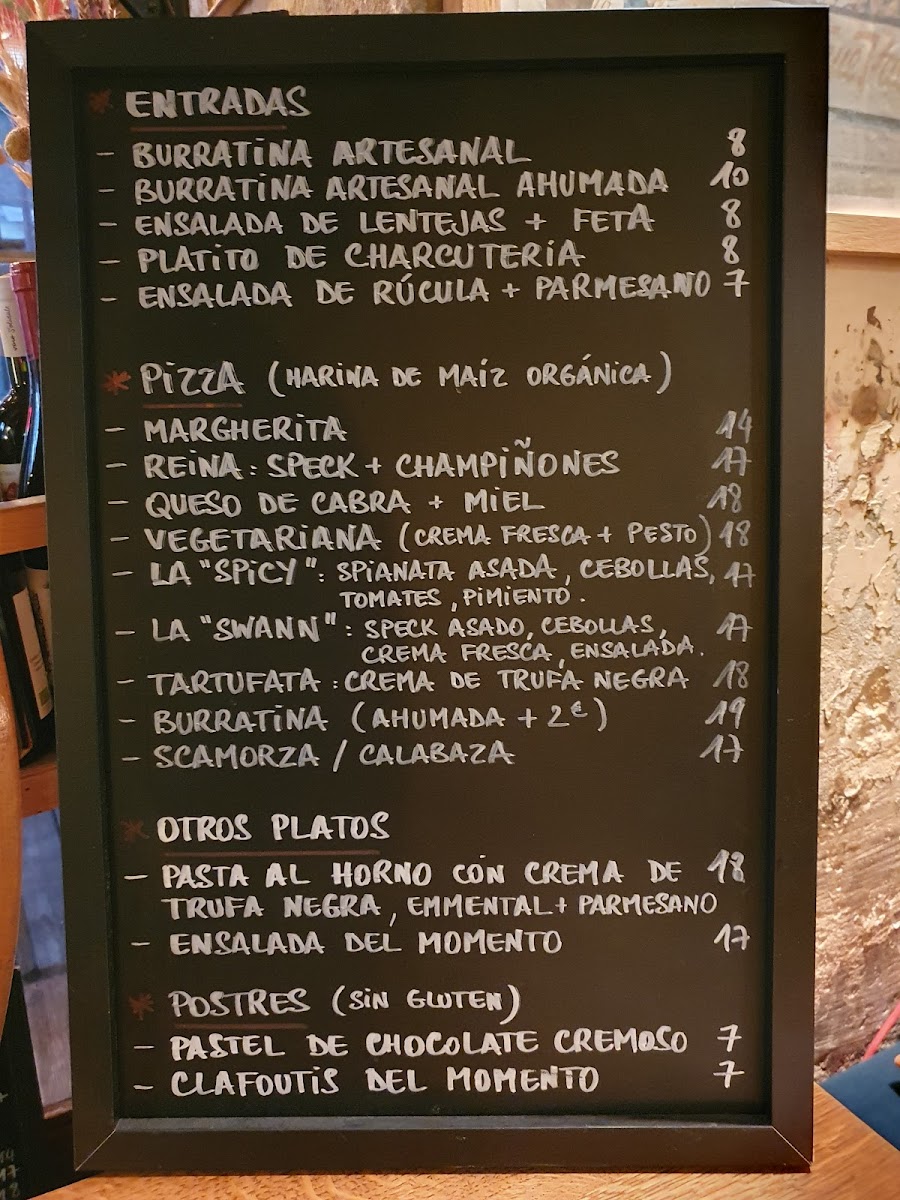 * ENTRADAS
- BURRATINA ARTESANAL 8
- BURRATINA ARTESANAL AHUMADA 10
- ENSALADA DE LENTEJAS + FETA 8
- PLATITO DE CHARCUTERIA 8
- ENSALADA DE RÚCULA + PARMESANO 7
* PIZZA (HARINA DE MAÍZ ORGÁNICA)
- MARGHERITA 14
- REINA : SPECK + CHAMPIÑONES 17
- QUESO DE CABRA + MIEL 18
- VEGETARIANA (CREMA FRESCA + PESTO) 18
- LA "SPICY" : SPIANATA ASADA, CEBOLLAS, 17
TOMATES, PIMIENTO.
- LA "SWANN" : SPECK ASADO, CEBOLLAS, 17
CREMA FRESCA, ENSALADA.
- TARTUFATA : CREMA DE TRUFA NEGRA 18
- BURRATINA (AHUMADA + 2€) 19
- SCAMORZA / CALABAZA 17
* OTROS PLATOS
- PASTA AL HORNO CON CREMA DE 18
TRUFA NEGRA, EMMENTAL + PARMESANO
- ENSALADA DEL MOMENTO 17
* POSTRES (SIN GLUTEN)
- PASTEL DE CHOCOLATE CREMOSO 7
- CLAFOUTIS DEL MOMENTO 7
14
17
18